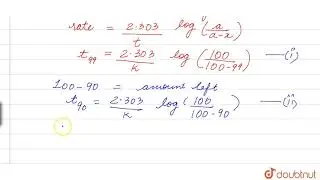 rate = 2.303/t log (a/a-x)
t99 = 2.303/k log (100/100-99) —(i)
100-90 = amount left
t90 = 2.303/k log (100/100-90) —(ii)
doubtnut